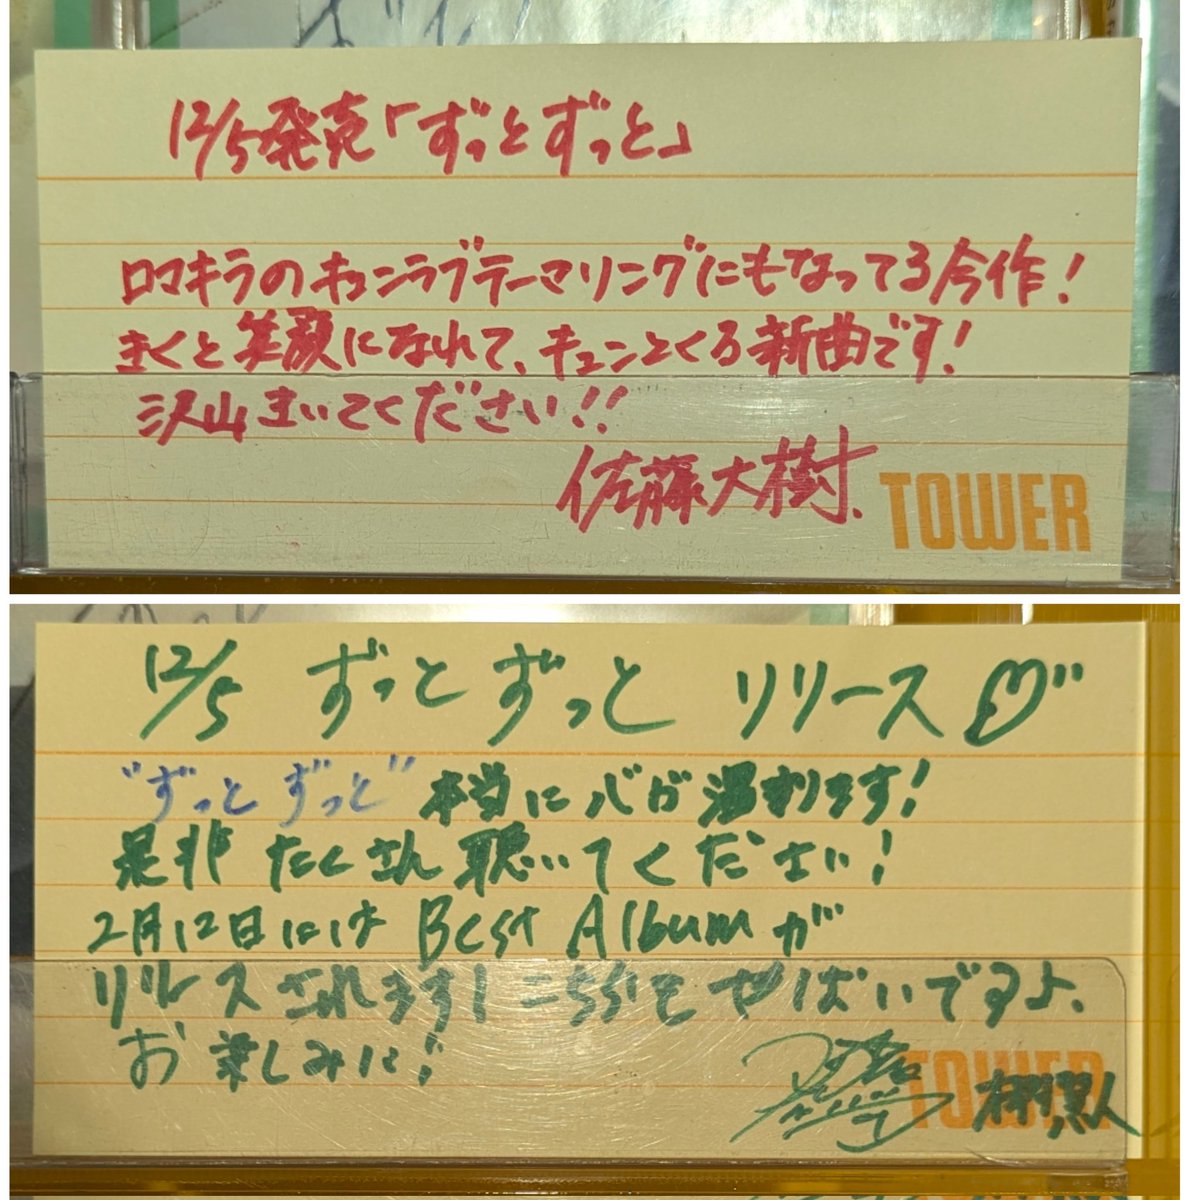 12/5発売「ずっとずっと」
ロマキラのキュンラブテーマソングにもなってる今作！
きくと笑顔になれて、キュンとくる新曲です！
沢山きいてください！！
佐藤大樹
TOWER
12/5 ずっと ずっと リリース
"ずっと ずっと" 本当にバカ沼ります！
是非 たくさん 聴いてください！
2月12日には Best Album が
リリース されます！こちらも やばいですよ、
お楽しみに！
TOWER